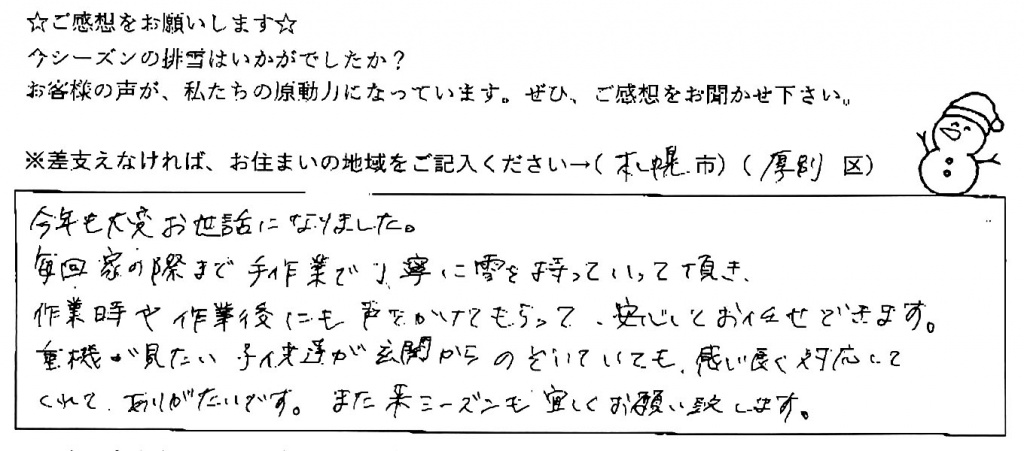 ☆ご感想をお願いします☆
今シーズンの排雪はいかがでしたか？
お客様の声が、私たちの原動力になっています。ぜひ、ご感想をお聞かせ下さい。
※差支えなければ、お住まいの地域をご記入ください→(札幌市)(厚別区)
今年も大変お世話になりました。
毎回家の際まで手作業で丁寧に雪を持っていって頂き、
作業時や作業後にも声をかけてもらって、安心しておまかせできます。
重機が見たい子供達が玄関からのぞいていても、感じ良く対応して
くれて、ありがたいです。また来シーズンも宜しくお願い致します。